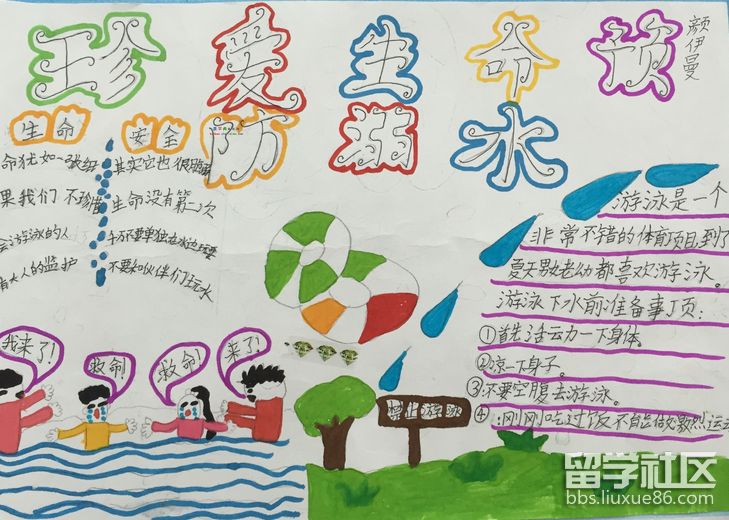 珍爱生命 预
防溺水
颜伊曼
生命
安全
命犹如一张纸
果我们不珍惜
会游泳的人
有大人的监护
其实它也很
生命没有第二次
千万不要单独去水边玩耍
不要和伙伴们玩水
游泳是一个
非常不错的体育项目,到了
夏天男女老幼都喜欢游泳。
游泳下水前准备事项:
①首先活动一下身体
②凉一下身子。
③不要空腹去游泳。
④:刚刚吃过饭不能做激烈运动
我来了!
救命!
救命!
来了!
禁止游泳
留学社区
bbs.liuxue86.com